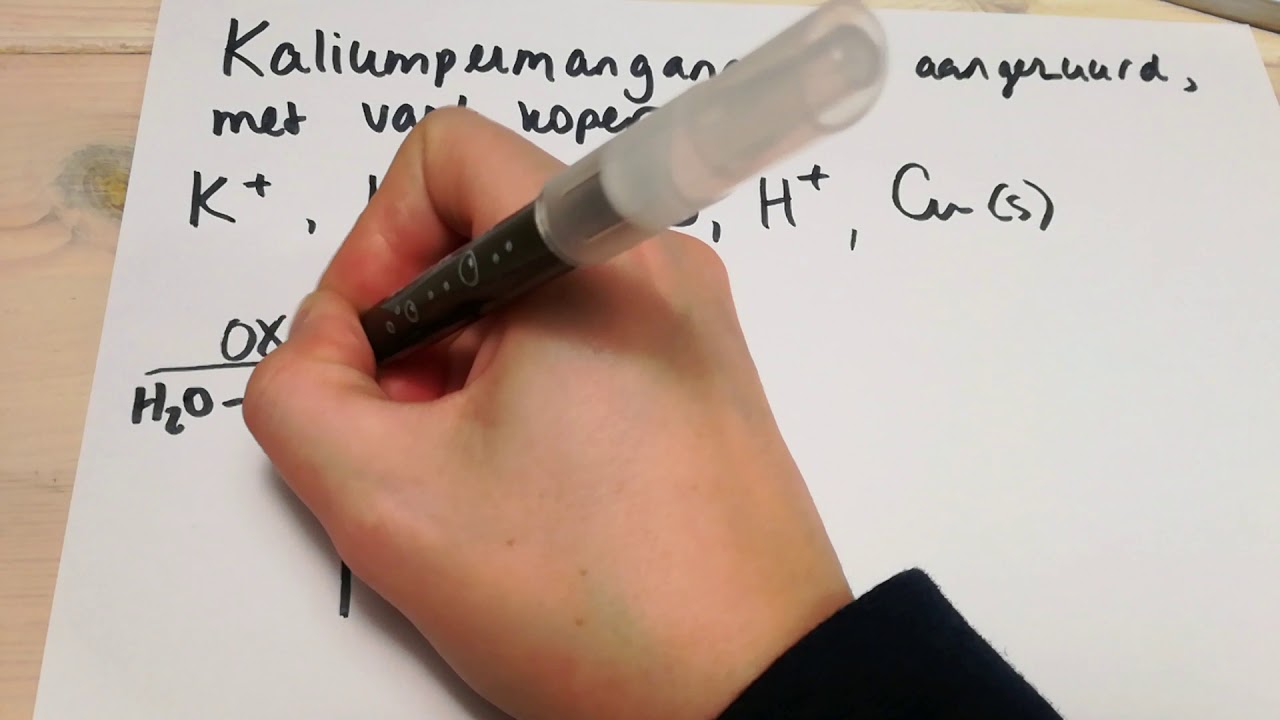 Kaliumpermangana aangezuurd,
met vast koper
K⁺, , H⁺, Cu(s)
OX
H₂O -